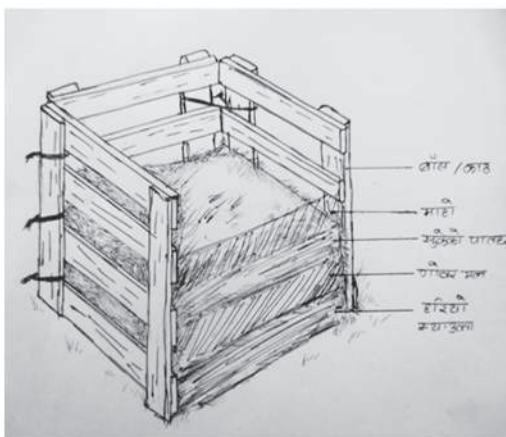 बाँस / काठ
माटो
सुकेको पातहरु
गोबर मल
हरियो
स्याउला